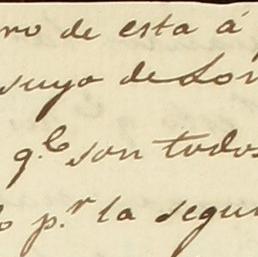 ro de esta á
suyo de Lon
q.e son todos
p.r la segu